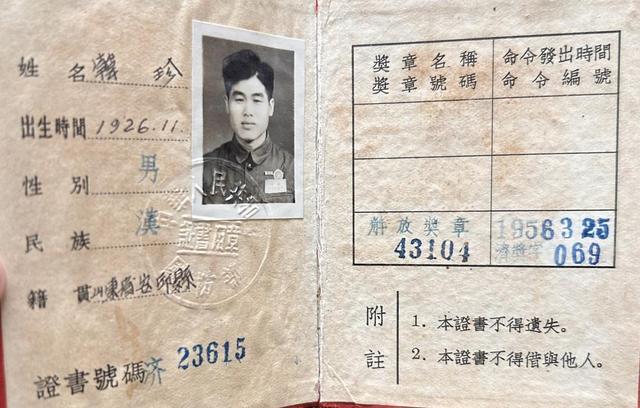 姓 名 韓 珍
出生時間 1926.11.
性 別 男
民 族 漢
籍 貫 山東省安邱縣
證書號碼 济 23615
獎章名稱 命令發出時間
獎章號碼 命令編號
解放獎章 1956 3 25
43104 069
附註
1. 本證書不得遺失。
2. 本證書不得借與他人。